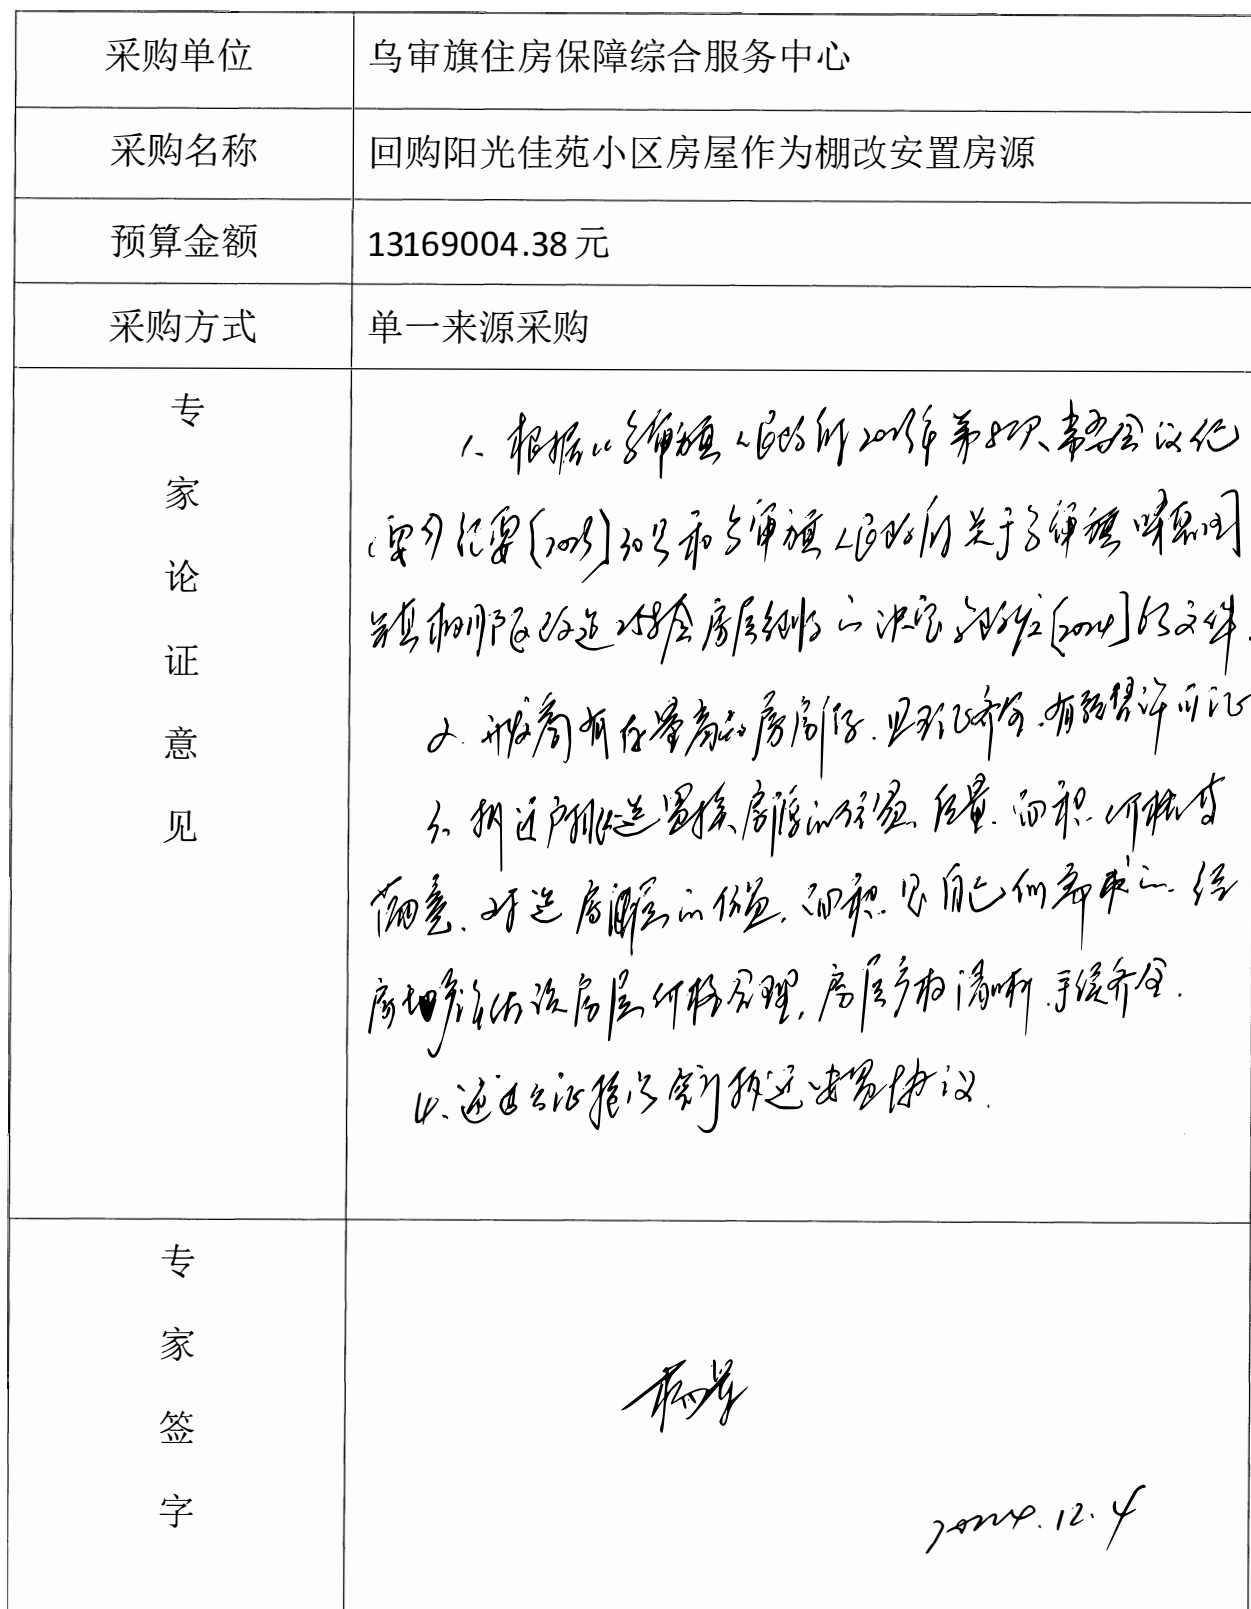 采购单位 乌审旗住房保障综合服务中心
采购名称 回购阳光佳苑小区房屋作为棚改安置房源
预算金额 13169004.38元
采购方式 单一来源采购
专家论证意见
1、根据《乌审旗人民政府 年第8次常务会议纪
要》纪要 30号和乌审旗人民政府关于乌审旗嘎鲁图
镇棚户区改造 房屋征收的决定乌政发[2024] 文件。
2、开发商有存量商品房房源、且证齐全、有预售许可证
3、拆迁户挑选置换房源的位置、质量、面积、价格
满意、对选房屋的位置、面积、是自己 的、经
房地产评估该房屋价格合理,房屋产权清晰、手续齐全.
4、通过公证 号签订拆迁安置协议.
专家签字
2024.12.4